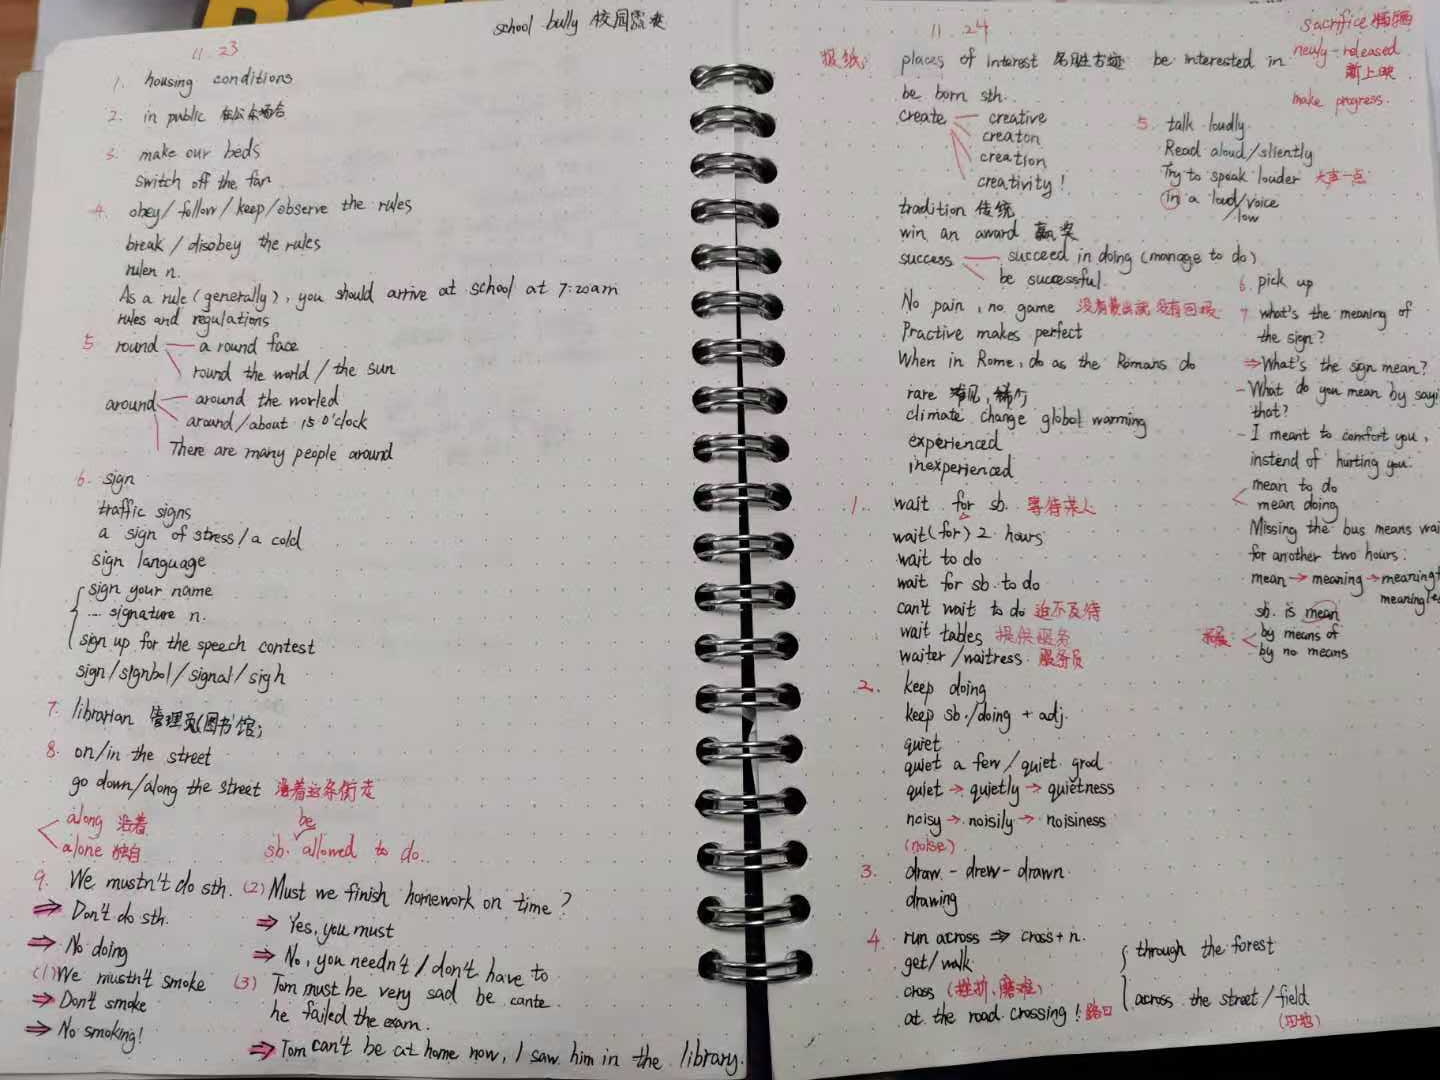 school bully 校园霸凌
11.23
1. housing conditions
2. in public 在公众场合
3. make our beds
switch off the fan
4. obey/follow/keep/observe the rules
break/disobey the rules
rulen n.
As a rule (generally), you should arrive at school at 7:20am
rules and regulations
5 round — a round face
round the world / the sun
around — around the worled
around/about 15 o'clock
There are many people around
6. sign
traffic signs
a sign of stress/a cold
sign language
sign your name
... signature n.
sign up for the speech contest
sign/signbol/signal/sigh
7. librarian 管理员(图书馆)
8. on/in the street
go down/along the street 沿着这条街走
along 沿着
alone 独自
be
sb. allowed to do.
9. We mustn't do sth.
⇒ Don't do sth.
⇒ No doing
(1) We mustn't smoke
⇒ Don't smoke
⇒ No smoking!
(2) Must we finish homework on time?
⇒ Yes, you must
⇒ No, you needn't / don't have to
(3) Tom must be very sad be cante
he failed the exam.
⇒ Tom can't be at home now, I saw him in the library.
11.24
报纸: places of interest 名胜古迹 be interested in
sacrifice 牺牲
newly-released
新上映
make progress.
be born sth.
create — creative
creaton
creation
creativity!
tradition 传统
win an award 赢奖
success — succeed in doing (manage to do)
be successful.
No pain, no game 没有付出就没有回报
Practive makes perfect
When in Rome, do as the Romans do
rare 罕见,稀有
climate change global warming
experienced
inexperienced
1. wait for sb. 等待某人
wait (for) 2 hours
wait to do
wait for sb. to do
can't wait to do 迫不及待
wait tables 提供服务
waiter/waitress 服务员
2. keep doing
keep sb./doing + adj.
quiet
quiet a few/quiet grod
quiet → quietly → quietness
noisy → noisily → noisiness
(noise)
3. draw - drew - drawn
drawing
4. run across ⇒ cross + n.
get/walk
cross (挫折、磨难)
at the road crossing! 路口
through the forest
across the street/field
(田地)
5. talk loudly
Read aloud/sliently
Try to speak louder 大声一点
in a loud/voice
/low
6. pick up
7 what's the meaning of
the sign?
⇒ What's the sign mean?
- What do you mean by sayi
that?
- I meant to comfort you,
instend of hurting you.
mean to do
mean doing
Missing the bus means wai
for another two hours.
mean → meaning →
sb. is mean
by means of
by no means